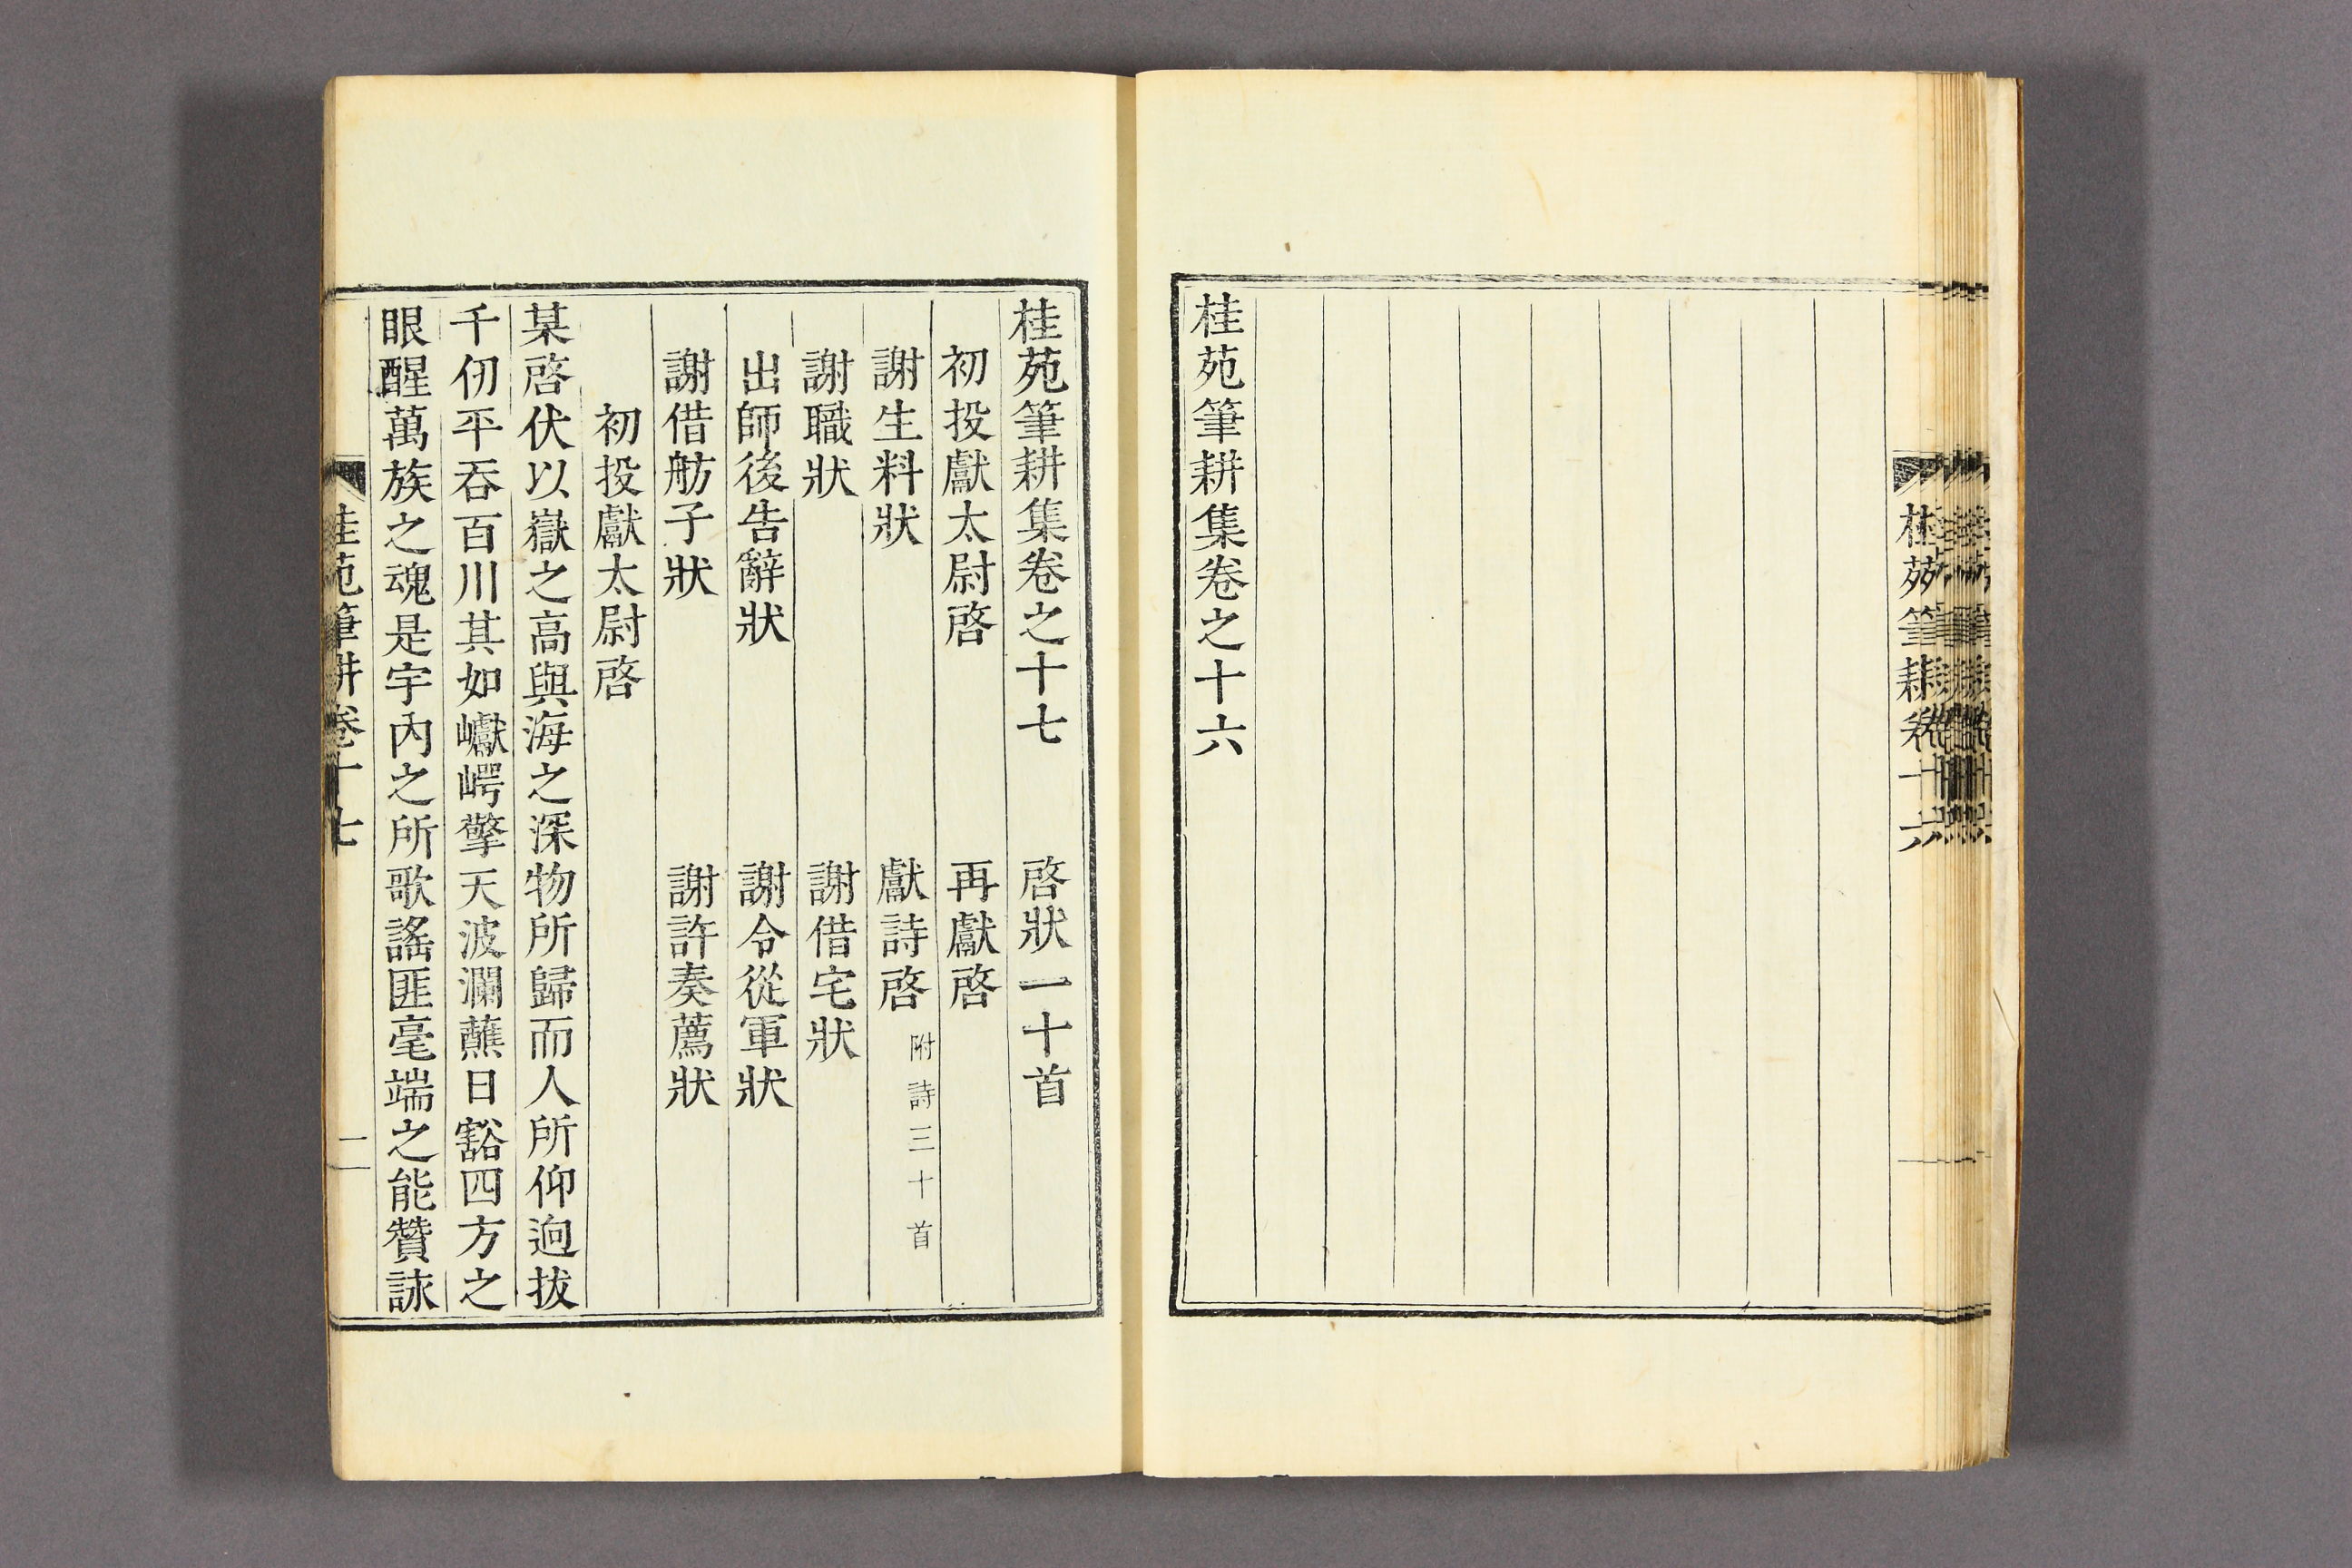 桂苑筆耕卷十六
桂苑筆耕集卷之十六
桂苑筆耕集卷之十七 啓狀一十首
初投獻太尉啓 再獻啓
謝生料狀 獻詩啓 附詩三十首
謝職狀 謝借宅狀
出師後告辭狀 謝令從軍狀
謝借舫子狀 謝許奏薦狀
初投獻太尉啓
某啓伏以嶽之高與海之深物所歸而人所仰逈拔
千仞平吞百川其如巘崿擎天波瀾蘸日豁四方之
眼醒萬族之魂是宇內之所歌謠匪毫端之能贊詠
桂苑筆耕卷十七 一